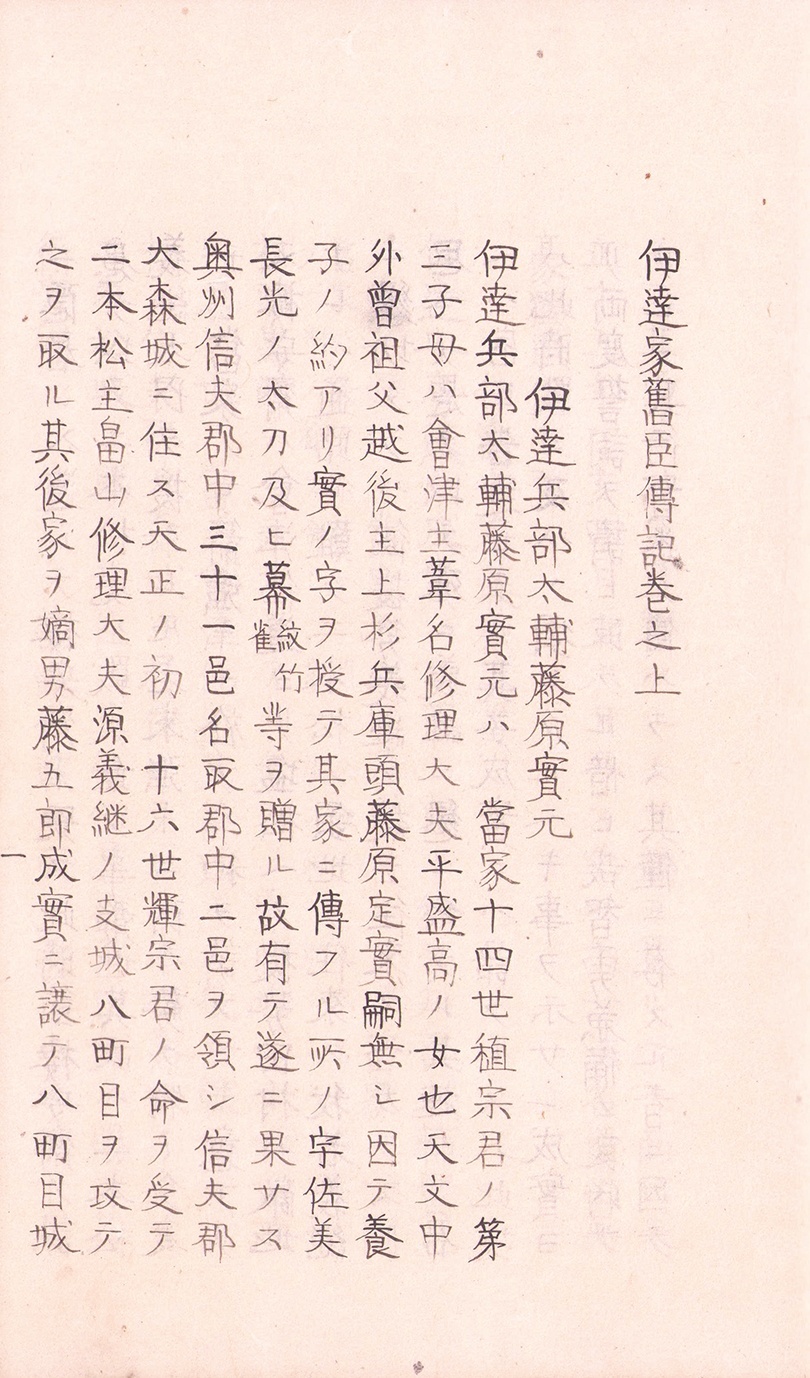 伊達家舊臣傳記巻之上
伊達兵部太輔藤原實元
伊達兵部太輔藤原實元ハ　當家十四世稙宗君ノ第
三子母ハ會津主葦名修理大夫平盛高ノ女也天文中
外曽祖父越後主上杉兵庫頭藤原定實嗣無シ因テ養
子ノ約アリ實ノ字ヲ授テ其家ニ傳フル所ノ宇佐美
長光ノ太刀及ヒ幕紋竹雀䓁ヲ贈ル故有テ遂ニ果サス
奥州信夫郡中三十一邑名取郡中二邑ヲ領シ信夫郡
大森城ニ住ス天正ノ初　十六世輝宗君ノ命ヲ受テ
二本松主畠山修理大夫源義継ノ支城八町目ヲ攻テ
之ヲ取ル其後家ヲ嫡男藤五郎成實ニ譲テ八町目城
一